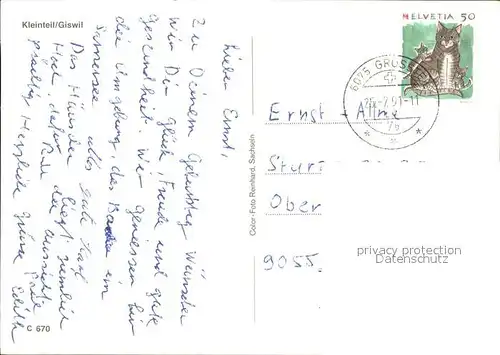 Kleinteil/Giswil
Lieber Ernst,
Zu Deinem Geburtstag wünschen
Wir Dir Glück, Freude und gute
Gesundheit. Wir geniessen hier
die Umgebung, das Baden im
Sarnersee alles
Das Häuschen liegt ziemlich
Hoch, dafür die Aussicht
Herzliche Grüsse Edith
C 670
Color-Foto Reinhard, Sachseln
HELVETIA 50
Ernst
Ober
9055
privacy protection
Datenschutz